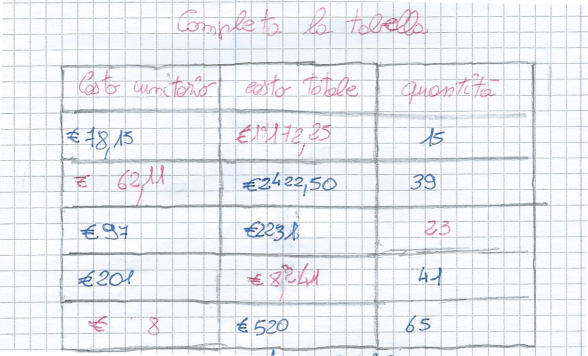 Completa la tabella
Costo unitario costo totale quantità
€78,15 €1172,25 15
€ 62,11 €2422,50 39
€97 €2231 23
€201 €8241 41
€ 8 €520 65